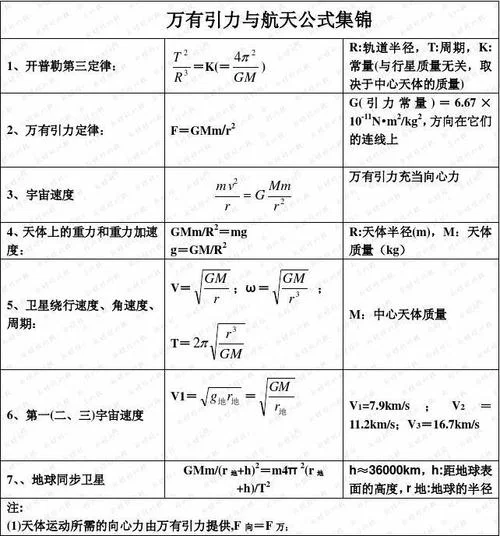 万有引力与航天公式集锦
1、开普勒第三定律:
T²/R³=K(=4π²/GM)
R:轨道半径，T:周期，K:
常量(与行星质量无关，取
决于中心天体的质量)
2、万有引力定律:
F＝GMm/r²
G(引力常量)＝6.67×
10⁻¹¹N•m²/kg²，方向在它们
的连线上
3、宇宙速度
mv²/r=G Mm/r²
万有引力充当向心力
4、天体上的重力和重力加速
度:
GMm/R²＝mg
g＝GM/R²
R:天体半径(m)，M：天体
质量（kg）
5、卫星绕行速度、角速度、
周期:
V＝√(GM/r)；ω＝√(GM/r³)；
T＝2π√(r³/GM)
M：中心天体质量
6、第一(二、三)宇宙速度
V1＝√(g地r地)＝√(GM/r地)
V₁=7.9km/s；V₂＝
11.2km/s；V₃＝16.7km/s
7、、地球同步卫星
GMm/(r地+h)²＝m4π²(r地
+h)/T²
h≈36000km，h:距地球表
面的高度，r地:地球的半径
注:
(1)天体运动所需的向心力由万有引力提供,F向＝F万;